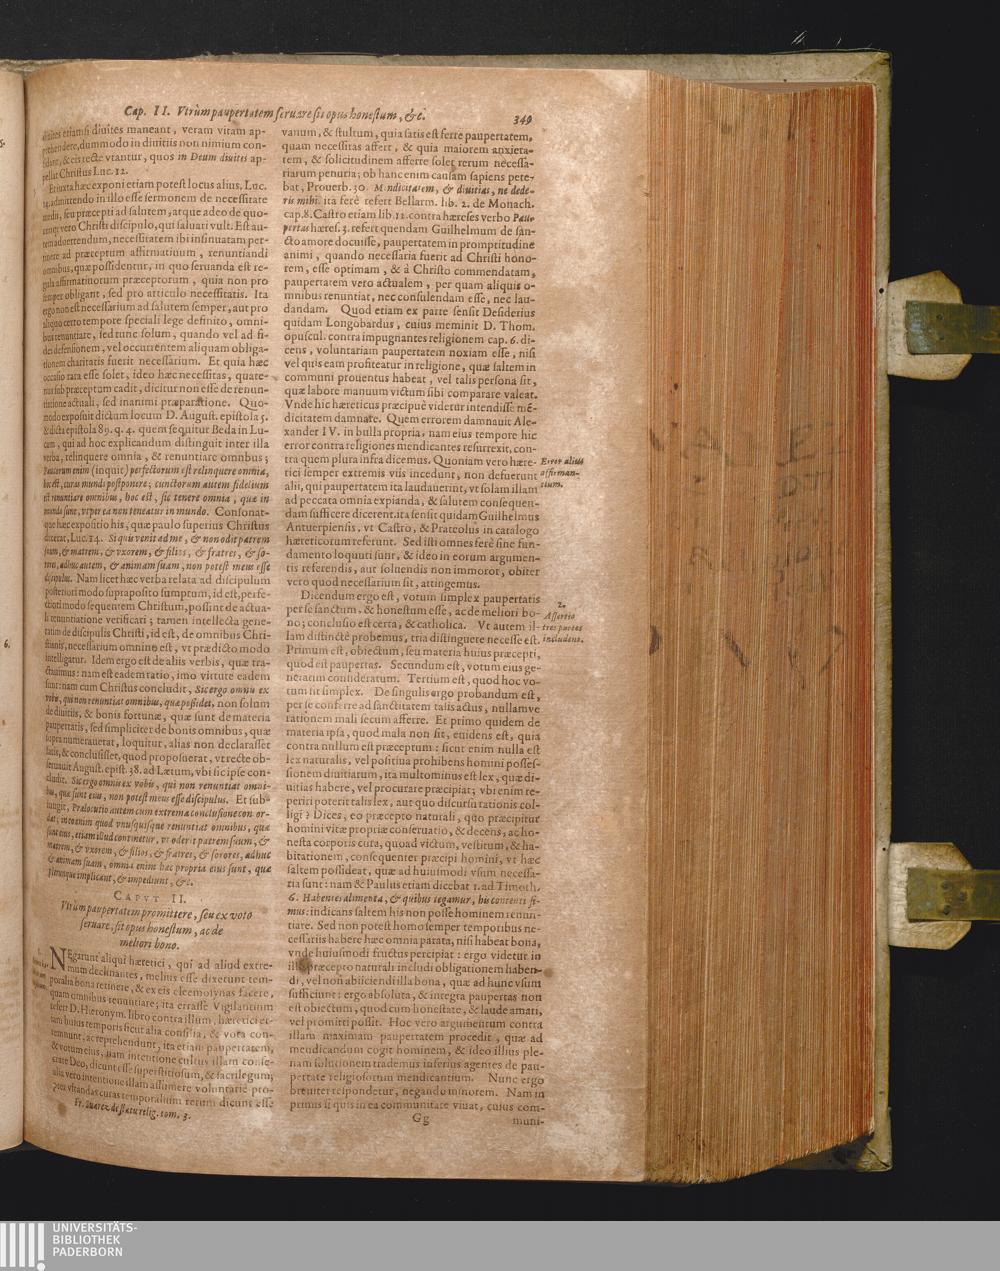 Cap. II. Vtrùm paupertatem seruare sit opus honestum, &c.
349
diuites etiamsi diuites maneant, veram vitam ap-
prehendere, dummodo in diuitiis non nimium con-
fidant, & eis rectè vtantur, quos in Deum diuites ap-
pellat Christus Luc. 12.
Et iuxta hæc exponi etiam potest locus alius, Luc.
14. admittendo in illo esse sermonem de necessitate
medij, seu præcepti ad salutem, atque adeo de quo-
cunque vero Christi discipulo, qui saluari vult. Est au-
tem aduertendum, necessitatem ibi insinuatam per-
tinere ad præceptum affirmatiuum, renuntiandi
omnibus, quæ possidentur, in quo seruanda est re-
gula affirmatiuorum præceptorum, quia non pro
semper obligant, sed pro articulo necessitatis. Ita
ergo non est necessarium ad salutem semper, aut pro
aliquo certo tempore speciali lege definito, omni-
bus renuntiare, sed tunc solum, quando vel ad fi-
dei defensionem, vel occurrentem aliquam obliga-
tionem charitatis fuerit necessarium. Et quia hæc
occasio rara esse solet, ideo hæc necessitas, quate-
nus sub præceptum cadit, dicitur non esse de renun-
tiatione actuali, sed in animi præparatione. Quo-
modo exposuit dictum locum D. August. epistola 5.
& dicta epistola 89. q. 4. quem sequitur Beda in Lu-
cam, qui ad hoc explicandum distinguit inter illa
verba, relinquere omnia, & renuntiare omnibus;
Paucorum enim (inquit) perfectorum est relinquere omnia,
hoc est, curas mundi postponere; cunctorum autem fidelium
est renuntiare omnibus, hoc est, sic tenere omnia, quæ in
mundo sunt, vt per ea non teneatur in mundo. Consonat-
que hæc expositio his, quæ paulo superius Christus
dixerat, Luc. 14. Si quis venit ad me, & non odit patrem
suum, & matrem, & vxorem, & filios, & fratres, & so-
rores, adhuc autem, & animam suam, non potest meus esse
discipulus. Nam licet hæc verba relata ad discipulum
posteriori modo supraposito sumptum, id est, perfe-
ctiori modo sequentem Christum, possint de actua-
li renuntiatione verificari; tamen intellecta gene-
ratim de discipulis Christi, id est, de omnibus Chri-
stianis, necessarium omnino est, vt prædicto modo
intelligatur. Idem ergo est de aliis verbis, quæ tra-
ctauimus: nam est eadem ratio, imo virtute eadem
sunt: nam cum Christus concludit, Sic ergo omnis ex
vobis, qui non renuntiat omnibus, quæ possidet, non solum
de diuitiis, & bonis fortunæ, quæ sunt de materia
paupertatis, sed simpliciter de bonis omnibus, quæ
supra numerauerat, loquitur, alias non declarasset
satis, & conclusisset, quod proposuerat, vt recte ob-
seruauit August. epist. 38. ad Lætum, vbi sic ipse con-
cludit. Sic ergo omnis ex vobis, qui non renuntiat omni-
bus, quæ sunt eius, non potest meus esse discipulus. Et sub-
iungit, Prælocutio autem cum extrema conclusione con or-
dat; in eo enim quod vnusquisque renuntiat omnibus, quæ
sunt eius, etiam illud continetur, vt oderit patrem suum, &
matrem, & vxorem, & filios, & fratres, & sorores, adhuc
& animam suam, omnia enim hæc propria eius sunt, quæ
plerumque implicant, & impediunt, &c.
CAPVT II.
Vtrùm paupertatem promittere, seu ex voto
seruare, sit opus honestum, ac de
meliori bono.
NEgarunt aliqui hæretici, qui ad aliud extre-
mum declinantes, melius esse dixerunt tem-
poralia bona retinere, & ex eis eleemosynas facere,
quam omnibus renuntiare; ita errasse Vigilantium
refert D. Hieronym. libro contra illum, hæretici et-
iam huius temporis sicut alia consilia, & vota con-
temnunt, ac reprehendunt, ita etiam paupertatem,
& votum eius, nam intentione cultus illam conse-
crare Deo, dicunt esse superstitiosum, & sacrilegum;
alia vero intentione illam assumere voluntarie pro-
pter vitandas curas temporalium rerum dicunt esse
Fr. Suarez de statu relig. tom. 3.
vanum, & stultum, quia satis est ferre paupertatem,
quam necessitas affert, & quia maiorem anxieta-
tem, & solicitudinem afferre solet rerum necessa-
riarum penuria; ob hanc enim causam sapiens pete-
bat, Prouerb. 30. Mendicitatem, & diuitias, ne dede-
ris mihi. ita ferè refert Bellarm. lib. 2. de Monach.
cap. 8. Castro etiam lib. 11. contra hæreses verbo Pau-
pertas hæres. 3. refert quendam Guilhelmum de san-
cto amore docuisse, paupertatem in promptitudine
animi, quando necessaria fuerit ad Christi hono-
rem, esse optimam, & à Christo commendatam,
paupertatem vero actualem, per quam aliquis o-
mnibus renuntiat, nec consulendam esse, nec lau-
dandam. Quod etiam ex parte sensit Desiderius
quidam Longobardus, cuius meminit D. Thom.
opuscul. contra impugnantes religionem cap. 6. di-
cens, voluntariam paupertatem noxiam esse, nisi
vel quis eam profiteatur in religione, quæ saltem in
communi prouentus habeat, vel talis persona sit,
quæ labore manuum victum sibi comparare valeat.
Vnde hic hæreticus præcipuè videtur intendisse mẽ-
dicitatem damnare. Quem errorem damnauit Ale-
xander IV. in bulla propria, nam eius tempore hic
error contra religiones mendicantes resurrexit, con-
tra quem plura infra dicemus. Quoniam vero hære-
tici semper extremis viis incedunt, non defuerunt
alii, qui paupertatem ita laudauerint, vt solam illam
ad peccata omnia expianda, & salutem consequen-
dam sufficere dicerent. ita sensit quidam Guilhelmus
Antuerpiensis, vt Castro, & Prateolus in catalogo
hæreticorum referunt. Sed isti omnes ferè sine fun-
damento loquuti sunt, & ideo in eorum argumen-
tis referendis, aut soluendis non immoror, obiter
vero quod necessarium sit, attingemus.
Dicendum ergo est, votum simplex paupertatis
per se sanctum, & honestum esse, ac de meliori bo-
no; conclusio est certa, & catholica. Vt autem il-
lam distinctè probemus, tria distinguere necesse est.
Primum est, obiectum, seu materia huius præcepti,
quod est paupertas. Secundum est, votum eius ge-
neratim consideratum. Tertium est, quod hoc vo-
tum sit simplex. De singulis ergo probandum est,
per se conferre ad sanctitatem talis actus, nullamve
rationem mali secum afferre. Et primo quidem de
materia ipsa, quod mala non sit, euidens est, quia
contra nullum est præceptum: sicut enim nulla est
lex naturalis, vel positiua prohibens homini posses-
sionem diuitiarum, ita multominus est lex, quæ di-
uitias habere, vel procurare præcipiat; vbi enim re-
periri poterit talis lex, aut quo discursu rationis col-
ligi? Dices, eo præcepto naturali, quo præcipitur
homini vitæ propriæ conseruatio, & decens, ac ho-
nesta corporis cura, quoad victum, vestitum, & ha-
bitationem, consequenter præcipi homini, vt hæc
saltem possideat, quæ ad huiusmodi vsum necessa-
ria sunt: nam & Paulus etiam dicebat 1. ad Timoth.
6. Habentes alimenta, & quibus tegamur, his contenti si-
mus: indicans saltem his non posse hominem renun-
tiare. Sed non potest homo semper temporibus ne-
cessariis habere hæc omnia parata, nisi habeat bona,
vnde huiusmodi fructus percipiat: ergo videtur in
illo præcepto naturali includi obligationem haben-
di, vel non abiiciendi illa bona, quæ ad hunc vsum
sufficiunt: ergo absoluta, & integra paupertas non
est obiectum, quod cum honestate, & laude amari,
vel promitti possit. Hoc vero argumentum contra
illam maximam paupertatem procedit, quæ ad
mendicandum cogit hominem, & ideo illius ple-
nam solutionem trademus inferius agentes de pau-
pertate religiosorum mendicantium. Nunc ergo
breuiter respondetur, negando minorem. Nam in
primis si quis in ea communitate viuat, cuius com-
Gg
muni-
Error alius
affirman-
tium.
2.
Assertio
tres partes
includens.
6.
UNIVERSITÄTS-
BIBLIOTHEK
PADERBORN